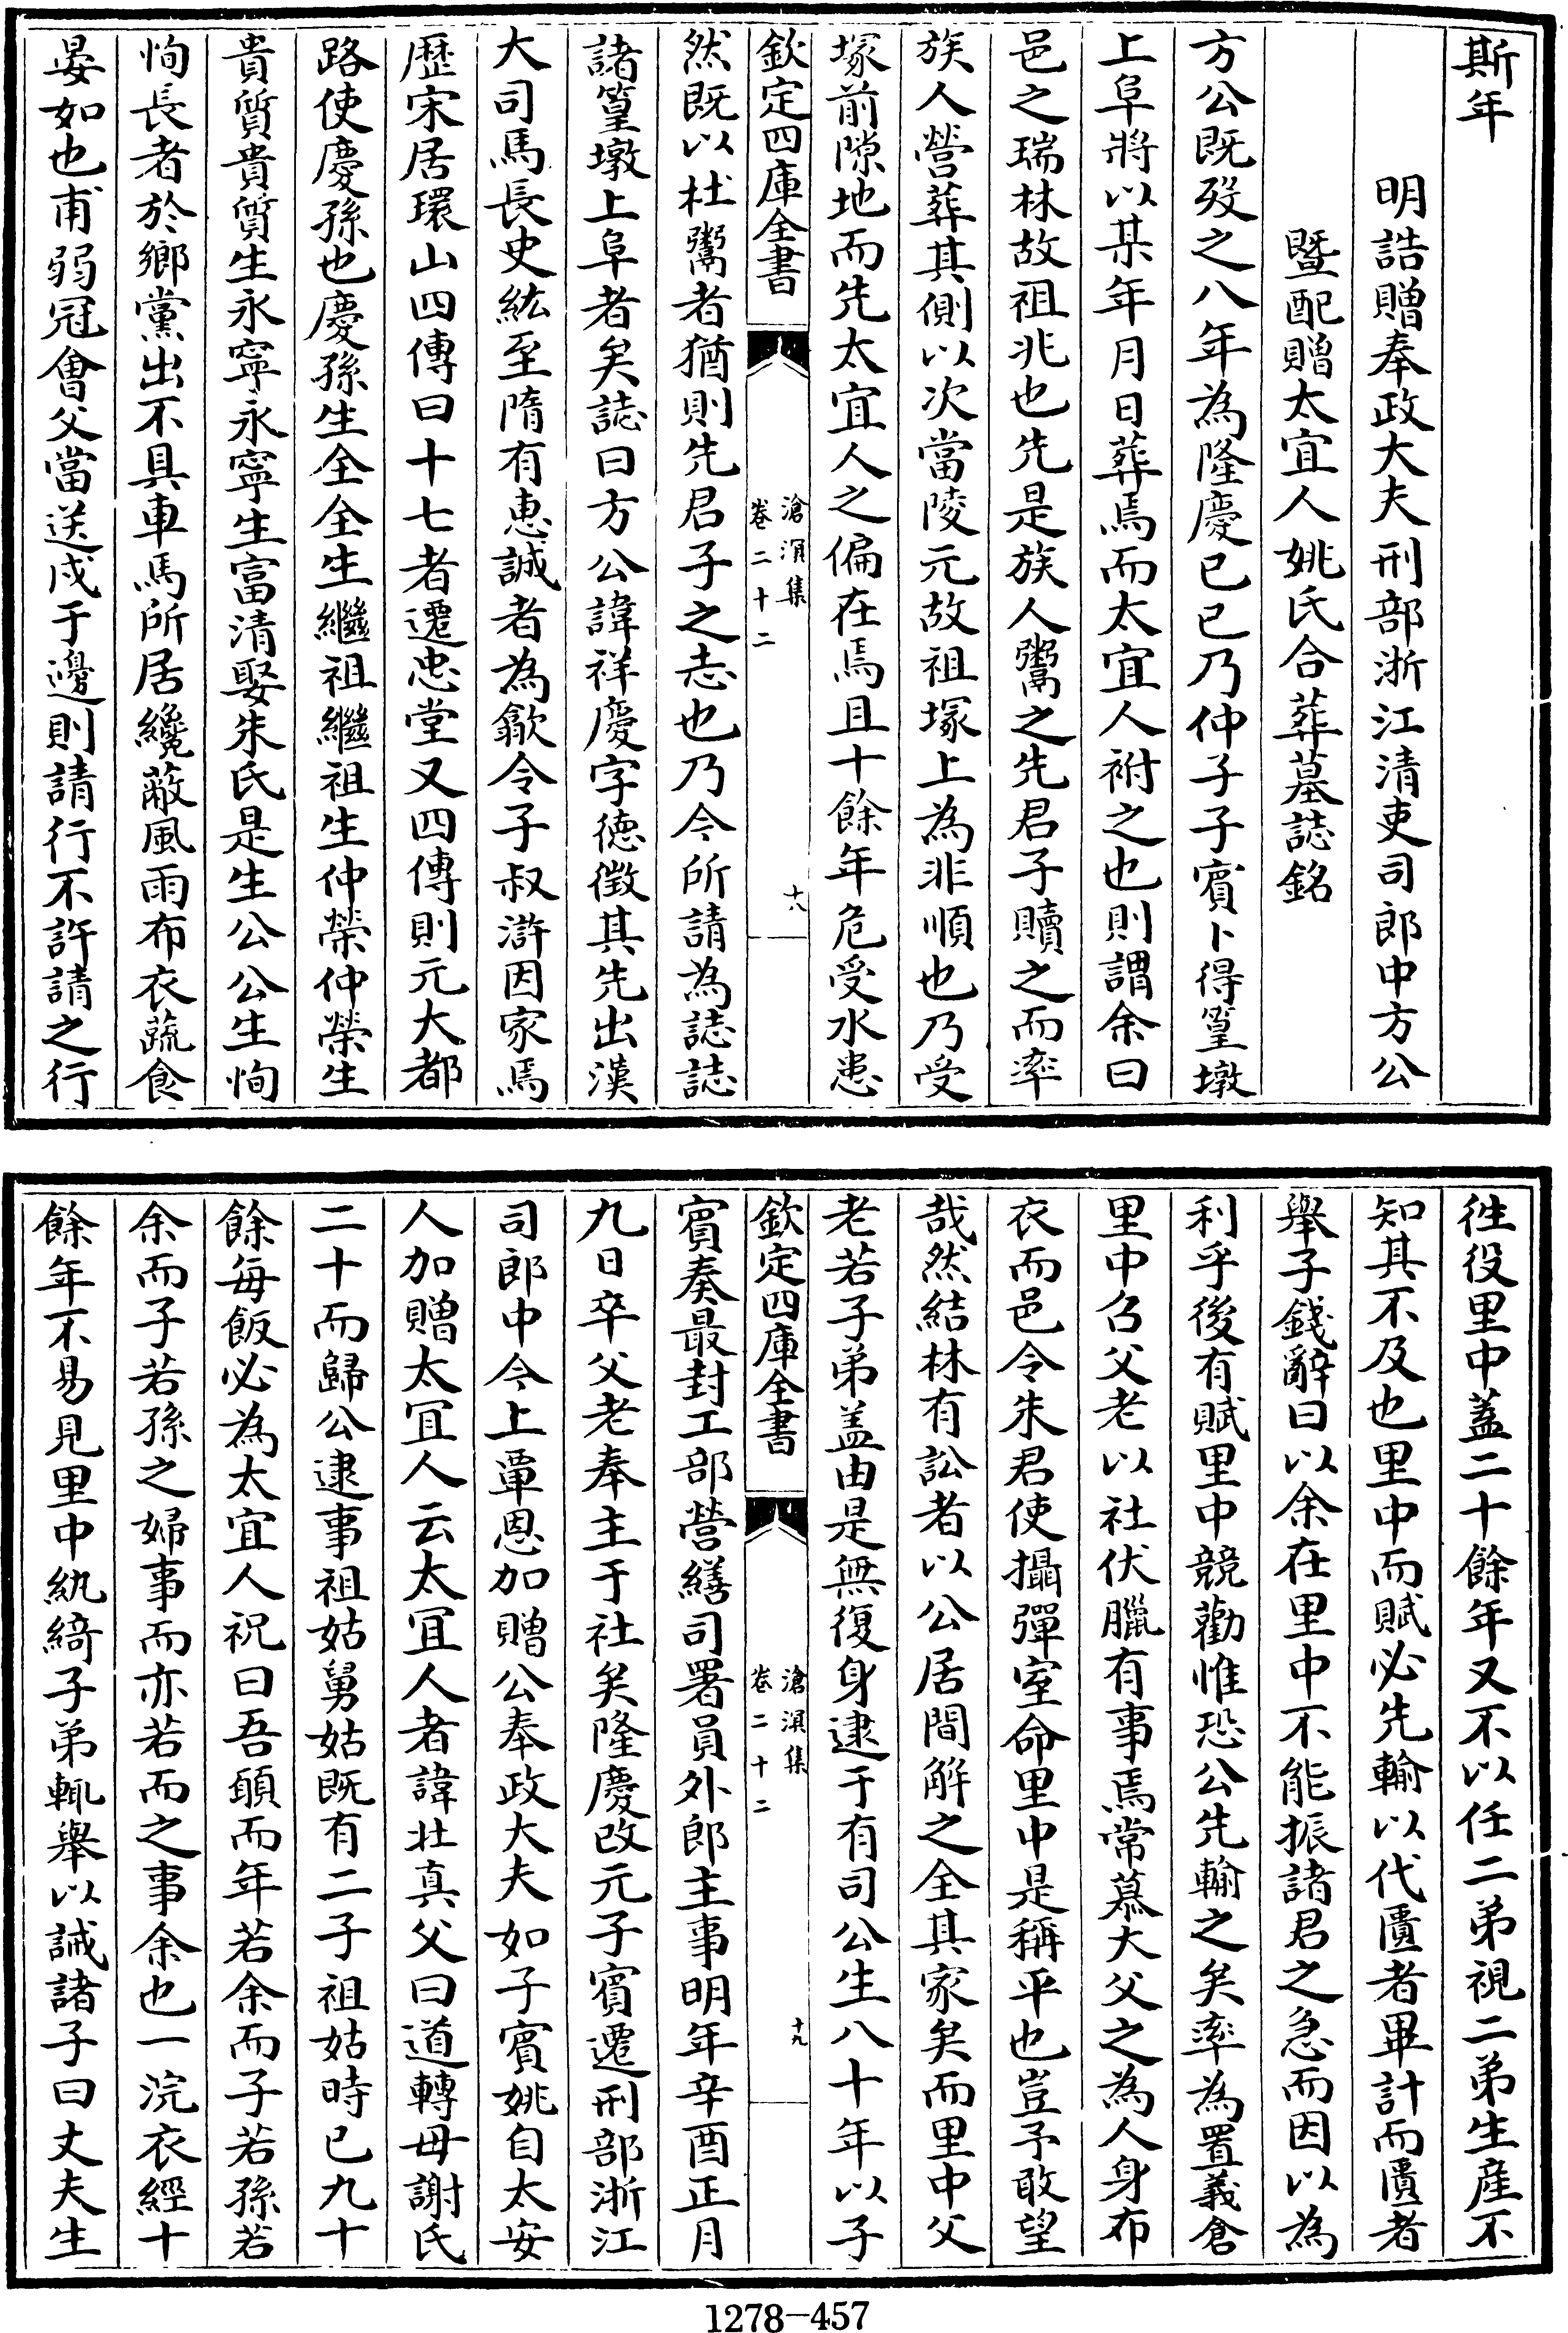 斯年
明誥贈奉政大夫刑部浙江清吏司郎中方公
暨配贈太宜人姚氏合葬墓誌銘
方公既歿之八年為隆慶已已乃仲子子賓卜得篁墩
上阜將以某年月日葬焉而太宜人祔之也則謂余曰
邑之瑞林故祖兆也先是族人鬻之先君子贖之而率
族人營葬其側以次當陵元故祖塚上為非順也乃受
塚前隙地而先太宜人之偏在焉且十餘年危受水患
欽定四庫全書
滄溟集
卷二十二
十八
然既以杜鬻者猶則先君子之志也乃今所請為誌誌
諸篁墩上阜者矣誌曰方公諱祥慶字德徵其先出漢
大司馬長史紘至隋有惠誠者為歙令子叔滸因家焉
歷宋居環山四傳曰十七者遷忠堂又四傳則元大都
路使慶孫也慶孫生全全生繼祖繼祖生仲榮仲榮生
貴質貴質生永寧永寧生富清娶朱氏是生公公生恂
恂長者於鄉黨出不具車馬所居纔蔽風雨布衣蔬食
晏如也甫弱冠會父當送戍于邊則請行不許請之行
徃役里中蓋二十餘年又不以任二弟視二弟生産不
知其不及也里中而賦必先輸以代匱者畢計而匱者
舉子錢辭曰以余在里中不能振諸君之急而因以為
利乎後有賦里中競勸惟恐公先輸之矣率為置義倉
里中召父老以社伏臘有事焉常慕大父之為人身布
衣而邑令朱君使攝彈室命里中是稱平也豈予敢望
哉然結林有訟者以公居間解之全其家矣而里中父
老若子弟盖由是無復身逮于有司公生八十年以子
欽定四庫全書
滄溟集
卷二十二
十九
賓奏最封工部營繕司署員外郎主事明年辛酉正月
九日卒父老奉主于社矣隆慶改元子賓遷刑部浙江
司郎中今上覃恩加贈公奉政大夫如子賓姚自太安
人加贈太宜人云太宜人者諱壯真父曰道轉母謝氏
二十而歸公逮事祖姑舅姑既有二子祖姑時已九十
餘每飯必為太宜人祝曰吾頤而年若余而子若孫若
余而子若孫之婦事而亦若而之事余也一浣衣經十
餘年不易見里中紈綺子弟輒舉以誡諸子曰丈夫生
1278-457